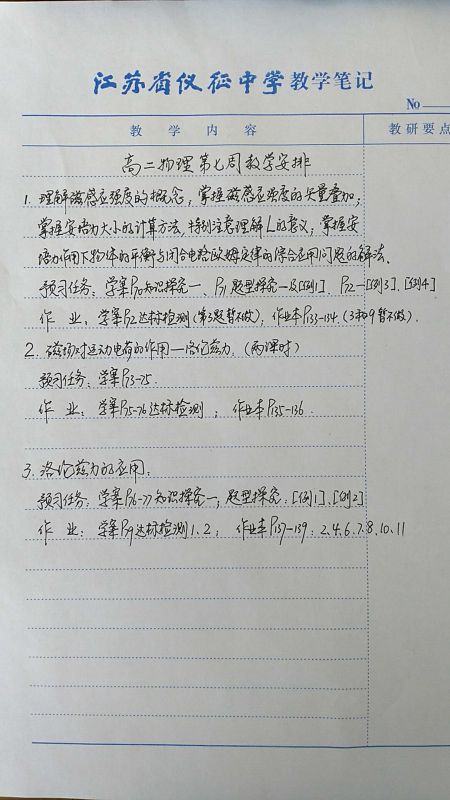 江苏省仪征中学教学笔记
No
教 学 内 容
教研要点
高二物理第七周教学安排
1. 理解磁感应强度的概念，掌握磁感应强度的矢量叠加；
掌握安培力大小的计算方法，特别注意理解L的意义；掌握安
培力作用下物体的平衡与闭合电路欧姆定律的综合应用问题的解法、
预习任务：学案P70知识探究一、P71题型探究一及[例1]、P72一[例3]、[例4]
作 业：学案P72达标检测（第3题暂不做），作业本P133-134（3和9暂不做）.
2. 磁场对运动电荷的作用—洛伦兹力.（两课时）
预习任务：学案P73-75.
作 业：学案P75-76达标检测； 作业本P135-136.
3. 洛伦兹力的应用：
预习任务：学案P76-77知识探究一；题型探究：[例1]、[例2]
作 业：学案P79达标检测1、2； 作业本P137-139：2.4.6.7.8.10.11